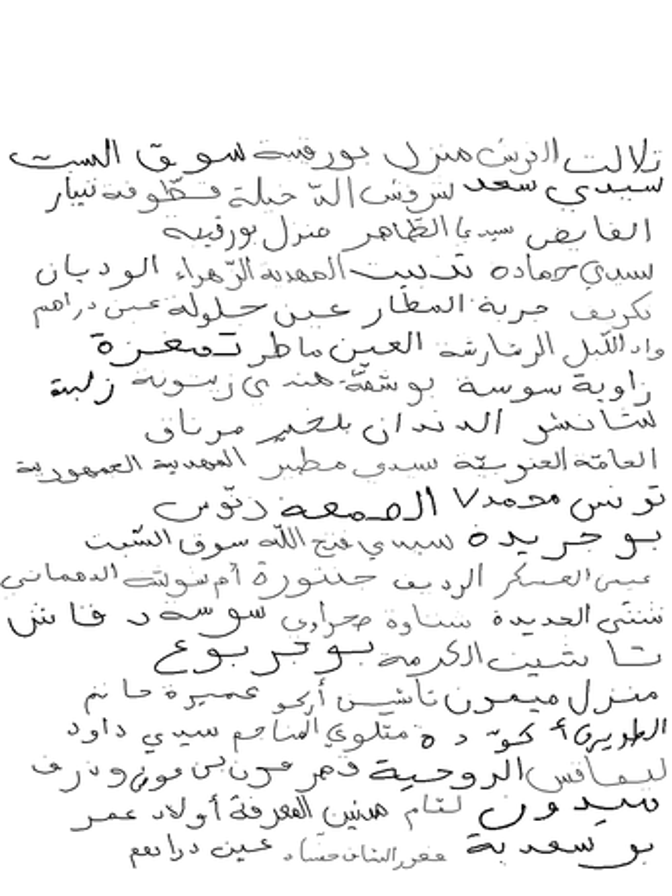 تلالت الفرش منزل بورقيبة سوق السبت
سيدي سعد سرفش الدّخيلة قطّوفة نيبار
الفايض سيدي الظاهر منزل بورقيبة
سيدي حمادة تذييت المهدية الزّهراء الوديان
تكريف جربة المطار عين جلولة عين دراهم
واد اللّيل الرشارشة العين ماطر تمغزة
زاوية سوسة بوشقّة هندي زيتونة زلبة
شانشو الدندان بلخير مرناق
العامّة العنوييّة سيدي مطير المهدية الجمهورية
تونس محمد٧ الصمعة دنّوس
بوجريدة سيدي فتح اللّه سوق الشبت
عيسى العسكر الرديف جننورة أم شوشة الدهماني
شنني الجديدة شناوة صحراوي سوسة د فاش
تاشيت الكرمة بوجربوع
منزل ميمون تاشيت أركو عميرة حاتم
الطويرف أكوّدة متلوي المناجم سيدي داود
ليمافس الروحية قصر عون بن عون وذرف
سيدون لتام هنين المعرفة أولاد عمر
بوسعدية عين دراهم